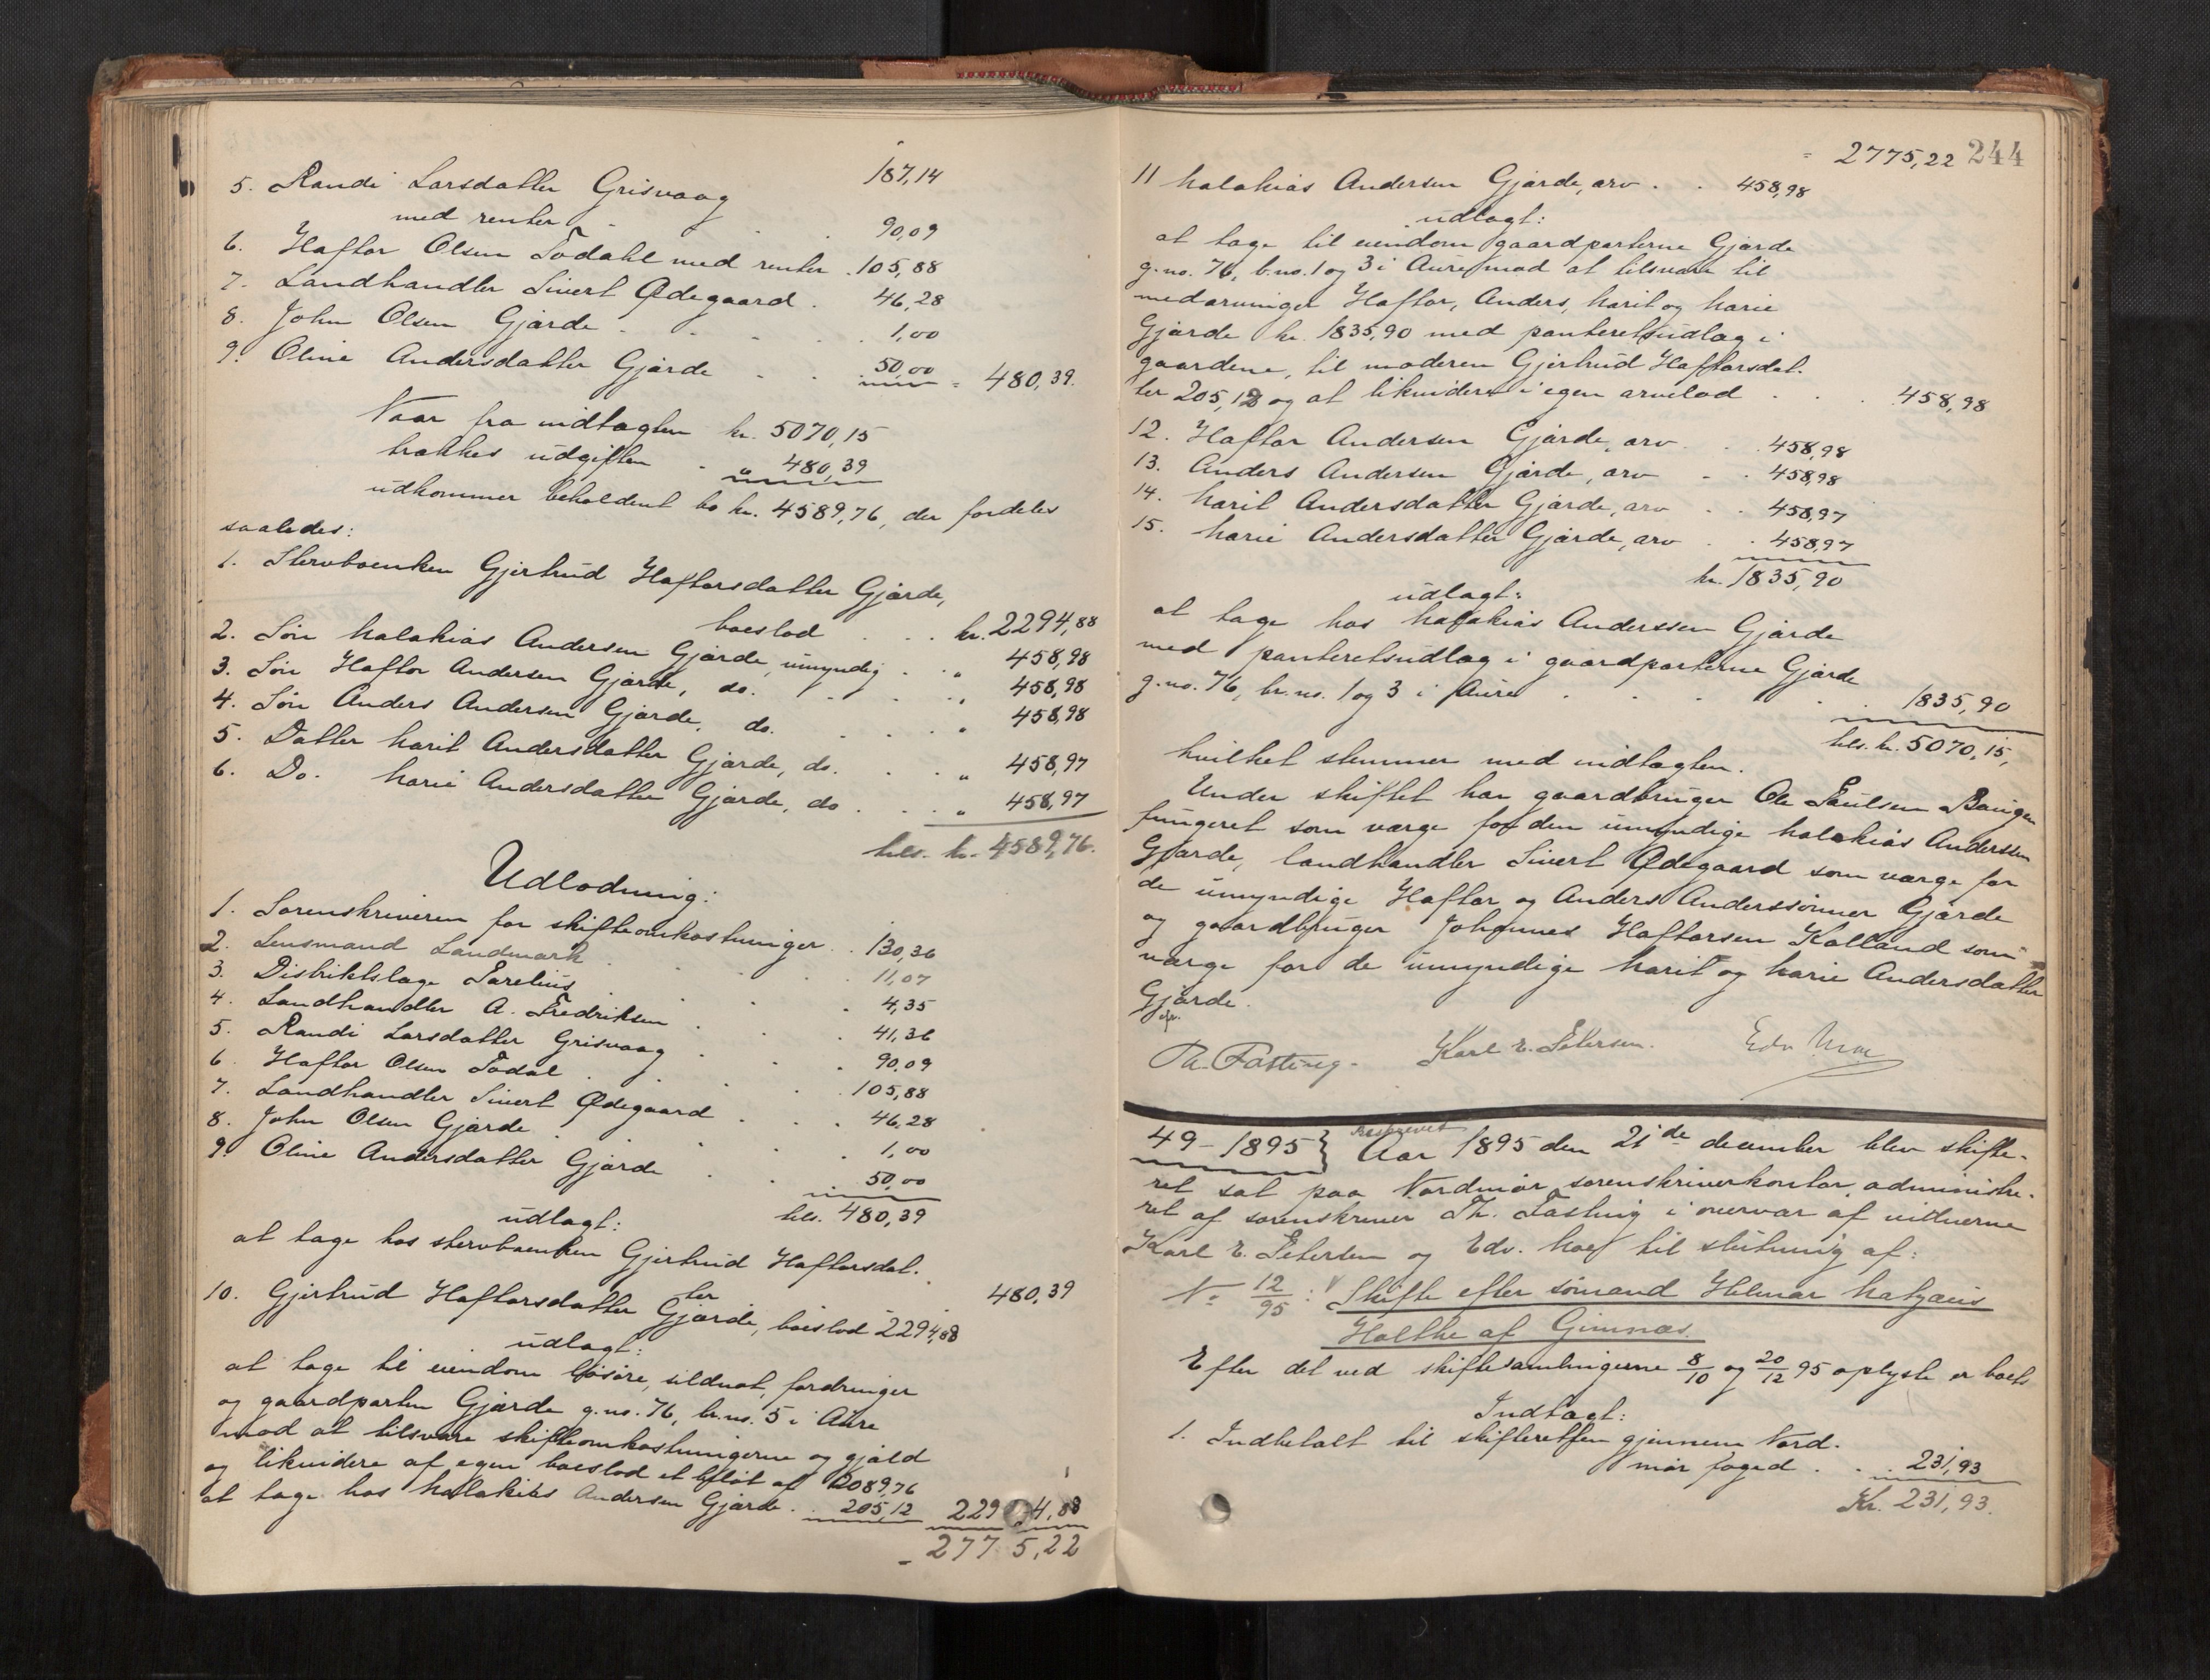 187,14
5. Randi Larsdatter Grisvaag
med renter . . . 90,09
6. Haftor Olsen Todahl med renter . 105,88
7. Landhandler Sivert Ødegaard . 46,28
8. John Olsen Gjærde . . . . 1,00
9. Oline Andersdatter Gjærde . . 50,00 = 480,39.
Naar fra indtægten kr. 5070,15
trækkes udgiften . „ 480,39
udkommer beholdent bo kr. 4589,76, der fordeles
saaledes:
1. Stervboenken Gjertrud Haftorsdatter Gjærde,
boeslod . . . kr. 2294,88
2. Søn Malakias Andersen Gjærde, umyndig . . „ 458,98
3. Søn Haftor Andersen Gjærde, do. . . . „ 458,98
4. Søn Anders Andersen Gjærde, do. . . . „ 458,98
5. Datter Marit Andersdatter Gjærde, do. . . „ 458,97
6. Do. Marie Andersdatter Gjærde, do . . . „ 458,97
tils. kr. 4589,76.
Udlodning:
1. Sorenskriveren for skifteomkostninger . . 130,36
2. Lensmand Landmark . . . 11,07
3. Distriktslæge Parelius . . . 4,35
4. Landhandler A. Fredriksen . . . 41,36
5. Randi Larsdatter Grisvaag . . . 90,09
6. Haftor Olsen Todal . . . 105,88
7. Landhandler Sivert Ødegaard . . . 46,28
8. John Olsen Gjærde . . . 1,00
9. Oline Andersdatter Gjærde . . . 50,00
tils. 480,39
udlagt:
at tage hos stervboenken Gjertrud Haftorsdat-
ter . . . 480,39
10. Gjertrud Haftorsdatter Gjærde, boeslod 2294,88
udlagt:
at tage til eiendom løsøre, sildnot, fordringer
og gaardparten Gjærde g.no. 76, br.no. 5 i Aure
mod at tilsvare skifteomkostningerne og gjæld
og likvidere af egen boeslod et beløb af 2089,76
at tage hos Malakias Andersen Gjærde . . 205,12 2294,88
= 2775,22
= 2775,22 244
11 Malakias Andersen Gjærde, arv . . 458,98
udlagt:
at tage til eiendom gaardparterne Gjærde
g.no. 76, b.no. 1 og 3 i Aure mod at tilsvare til
medarvinger Haftor, Anders, Marit og Marie
Gjærde kr. 1835,90 med panteretsudlæg i
gaardene, til moderen Gjertrud Haftorsdat-
ter 205,12 og at likvidere i egen arvelod . . . 458,98
12. Haftor Andersen Gjærde, arv . . 458,98
13. Anders Andersen Gjærde, arv . . 458,98
14. Marit Andersdatter Gjærde, arv . . 458,97
15. Marie Andersdatter Gjærde, arv . . 458,97
kr. 1835,90
udlagt:
at tage hos Malakias Anderssen Gjærde
med panteretsudlæg i gaardparterne Gjærde
g.no. 76, br.no. 1 og 3 i Aure . . . . . 1835,90
tils. kr. 5070,15,
hvilket stemmer med indtægten.
Under skiftet har gaardbruger Ole Paulsen Baugen
fungeret som værge for den umyndige Malakias Andersen
Gjærde, landhandler Sivert Ødegaard som værge for
de umyndige Haftor og Anders Anderssønner Gjærde
og gaardbruger Johannes Haftorsen Kalland som
værge for de umyndige Marit og Marie Andersdatter
Gjærde.
Th. Fasting. Karl E. Petersen. Edv. Moe
49-1895} Beskrevet Aar 1895 den 21de december blev skifte-
ret sat paa Nordmør sorenskriverkontor, administre-
ret af sorenskriver Th. Fasting i overvær af vitnerne
Karl E. Petersen og Edv. Moe til slutning af:
No 12/95: Skifte efter sømand Helmer Matzæus
Holthe af Gimnæs.
Efter det ved skiftesamlingerne 8/10 og 20/12 95 oplyste er boets
Indtægt:
1. Indbetalt til skifteretten gjennem Nord-
mør foged . . . 231,93
Kr. 231,93.